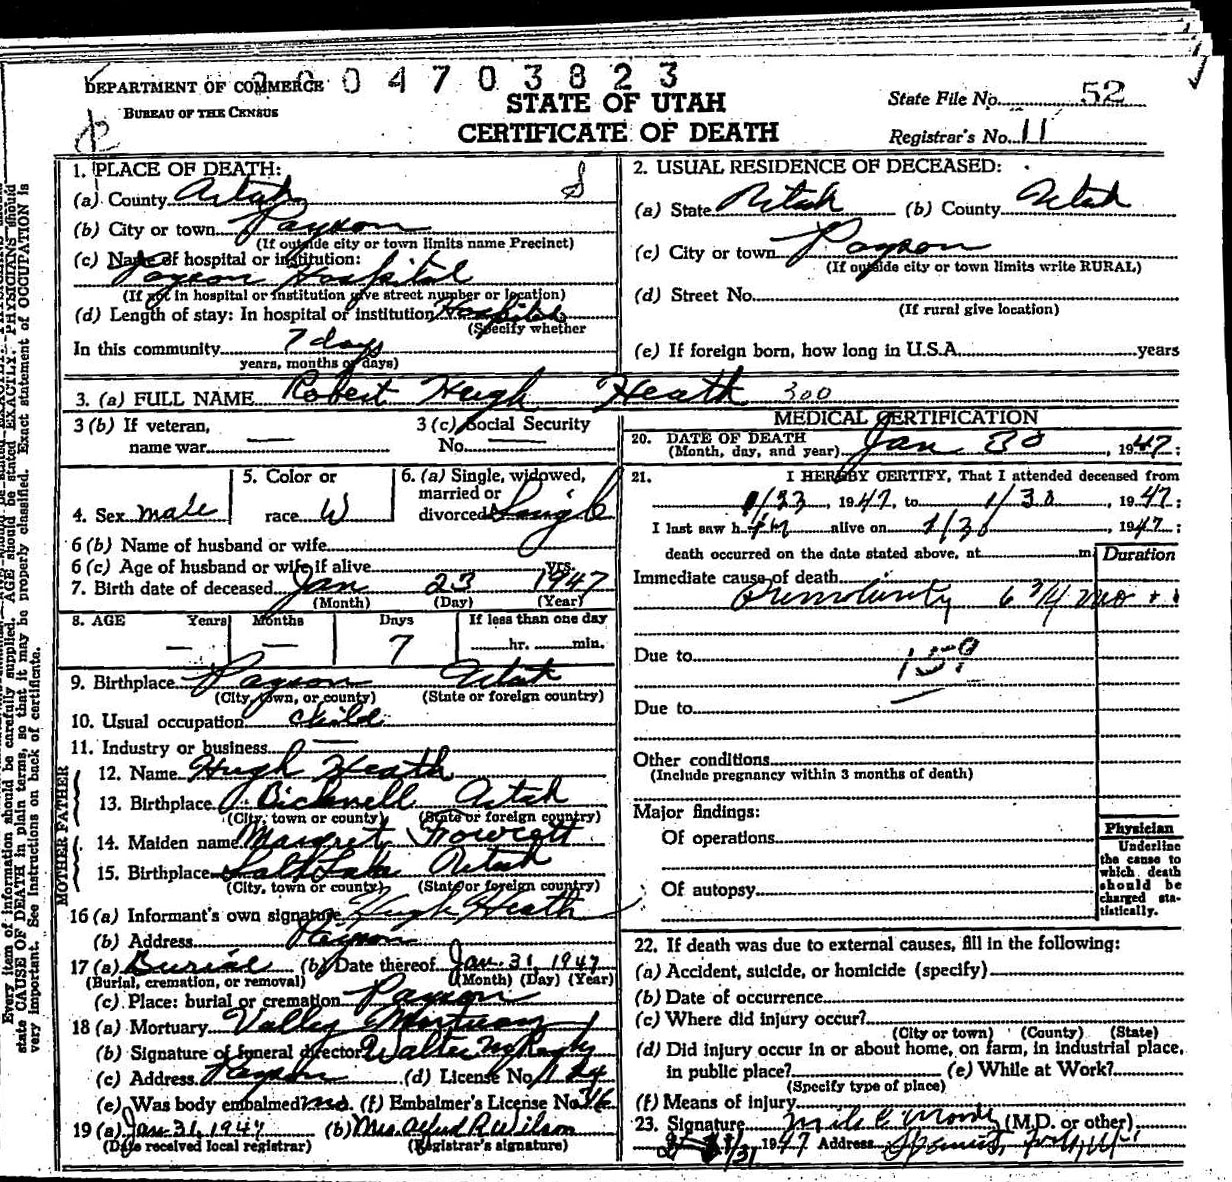 DEPARTMENT OF COMMERCE 0 0 4 7 0 3 8 2 3
BUREAU OF THE CENSUS
STATE OF UTAH
CERTIFICATE OF DEATH
State File No. 52
Registrar's No. 11
1. PLACE OF DEATH:
(a) County Utah
(b) City or town Payson
(If outside city or town limits name Precinct)
(c) Name of hospital or institution:
Payson Hospital
(If not in hospital or institution give street number or location)
(d) Length of stay: In hospital or institution Hospital
(Specify whether
In this community 7 days
years, months or days)
2. USUAL RESIDENCE OF DECEASED:
(a) State Utah (b) County Utah
(c) City or town Payson
(If outside city or town limits write RURAL)
(d) Street No.
(If rural give location)
(e) If foreign born, how long in U.S.A. years
3. (a) FULL NAME Robert Hugh Heath 300
3 (b) If veteran,
name war —
3 (c) Social Security
No. —
4. Sex male
5. Color or
race W
6. (a) Single, widowed,
married or
divorced Single
6 (b) Name of husband or wife
6 (c) Age of husband or wife if alive yrs.
7. Birth date of deceased Jan 23 1947
(Month) (Day) (Year)
8. AGE Years Months Days If less than one day
— — 7 hr. min.
9. Birthplace Payson Utah
(City, town, or county) (State or foreign country)
10. Usual occupation child
11. Industry or business —
FATHER
12. Name Hugh Heath
13. Birthplace Bicknell Utah
(City, town or county) (State or foreign country)
MOTHER
14. Maiden name Margret Fowcett
15. Birthplace Salt Lake Utah
(City, town or county) (State or foreign country)
16 (a) Informant's own signature Hugh Heath
(b) Address Payson
17 (a) Burial (b) Date thereof Jan. 31, 1947
(Burial, cremation, or removal) (Month) (Day) (Year)
(c) Place: burial or cremation Payson
18 (a) Mortuary Valley Mortuary
(b) Signature of funeral director Walter
(c) Address Payson (d) License No. 124
(e) Was body embalmed no. (f) Embalmer's License No. 316
19 (a) Jan 31, 1947 (b) Mrs. Alfred R. Wilson
(Date received local registrar) (Registrar's signature)
MEDICAL CERTIFICATION
20. DATE OF DEATH
(Month, day, and year) Jan 30, 1947;
21. I HEREBY CERTIFY, That I attended deceased from
1/23, 1947, to 1/30, 1947;
I last saw him alive on 1/30, 1947;
death occurred on the date stated above, at m.
Duration
Immediate cause of death
Prematurity 6 3/4 mo
Due to 159
Due to
Other conditions
(Include pregnancy within 3 months of death)
Major findings:
Of operations
Of autopsy
Physician
Underline
the cause to
which death
should be
charged sta-
tistically.
22. If death was due to external causes, fill in the following:
(a) Accident, suicide, or homicide (specify)
(b) Date of occurrence
(c) Where did injury occur?
(City or town) (County) (State)
(d) Did injury occur in or about home, on farm, in industrial place,
in public place? (e) While at Work?
(Specify type of place)
(f) Means of injury
23. Signature (M.D. or other)
1/31 1947 Address Spanish Fork, Ut
Every item of information should be carefully supplied. AGE should be stated EXACTLY. PHYSICIANS should
state CAUSE OF DEATH in plain terms, so that it may be properly classified. Exact statement of OCCUPATION is
very important. See instructions on back of certificate.